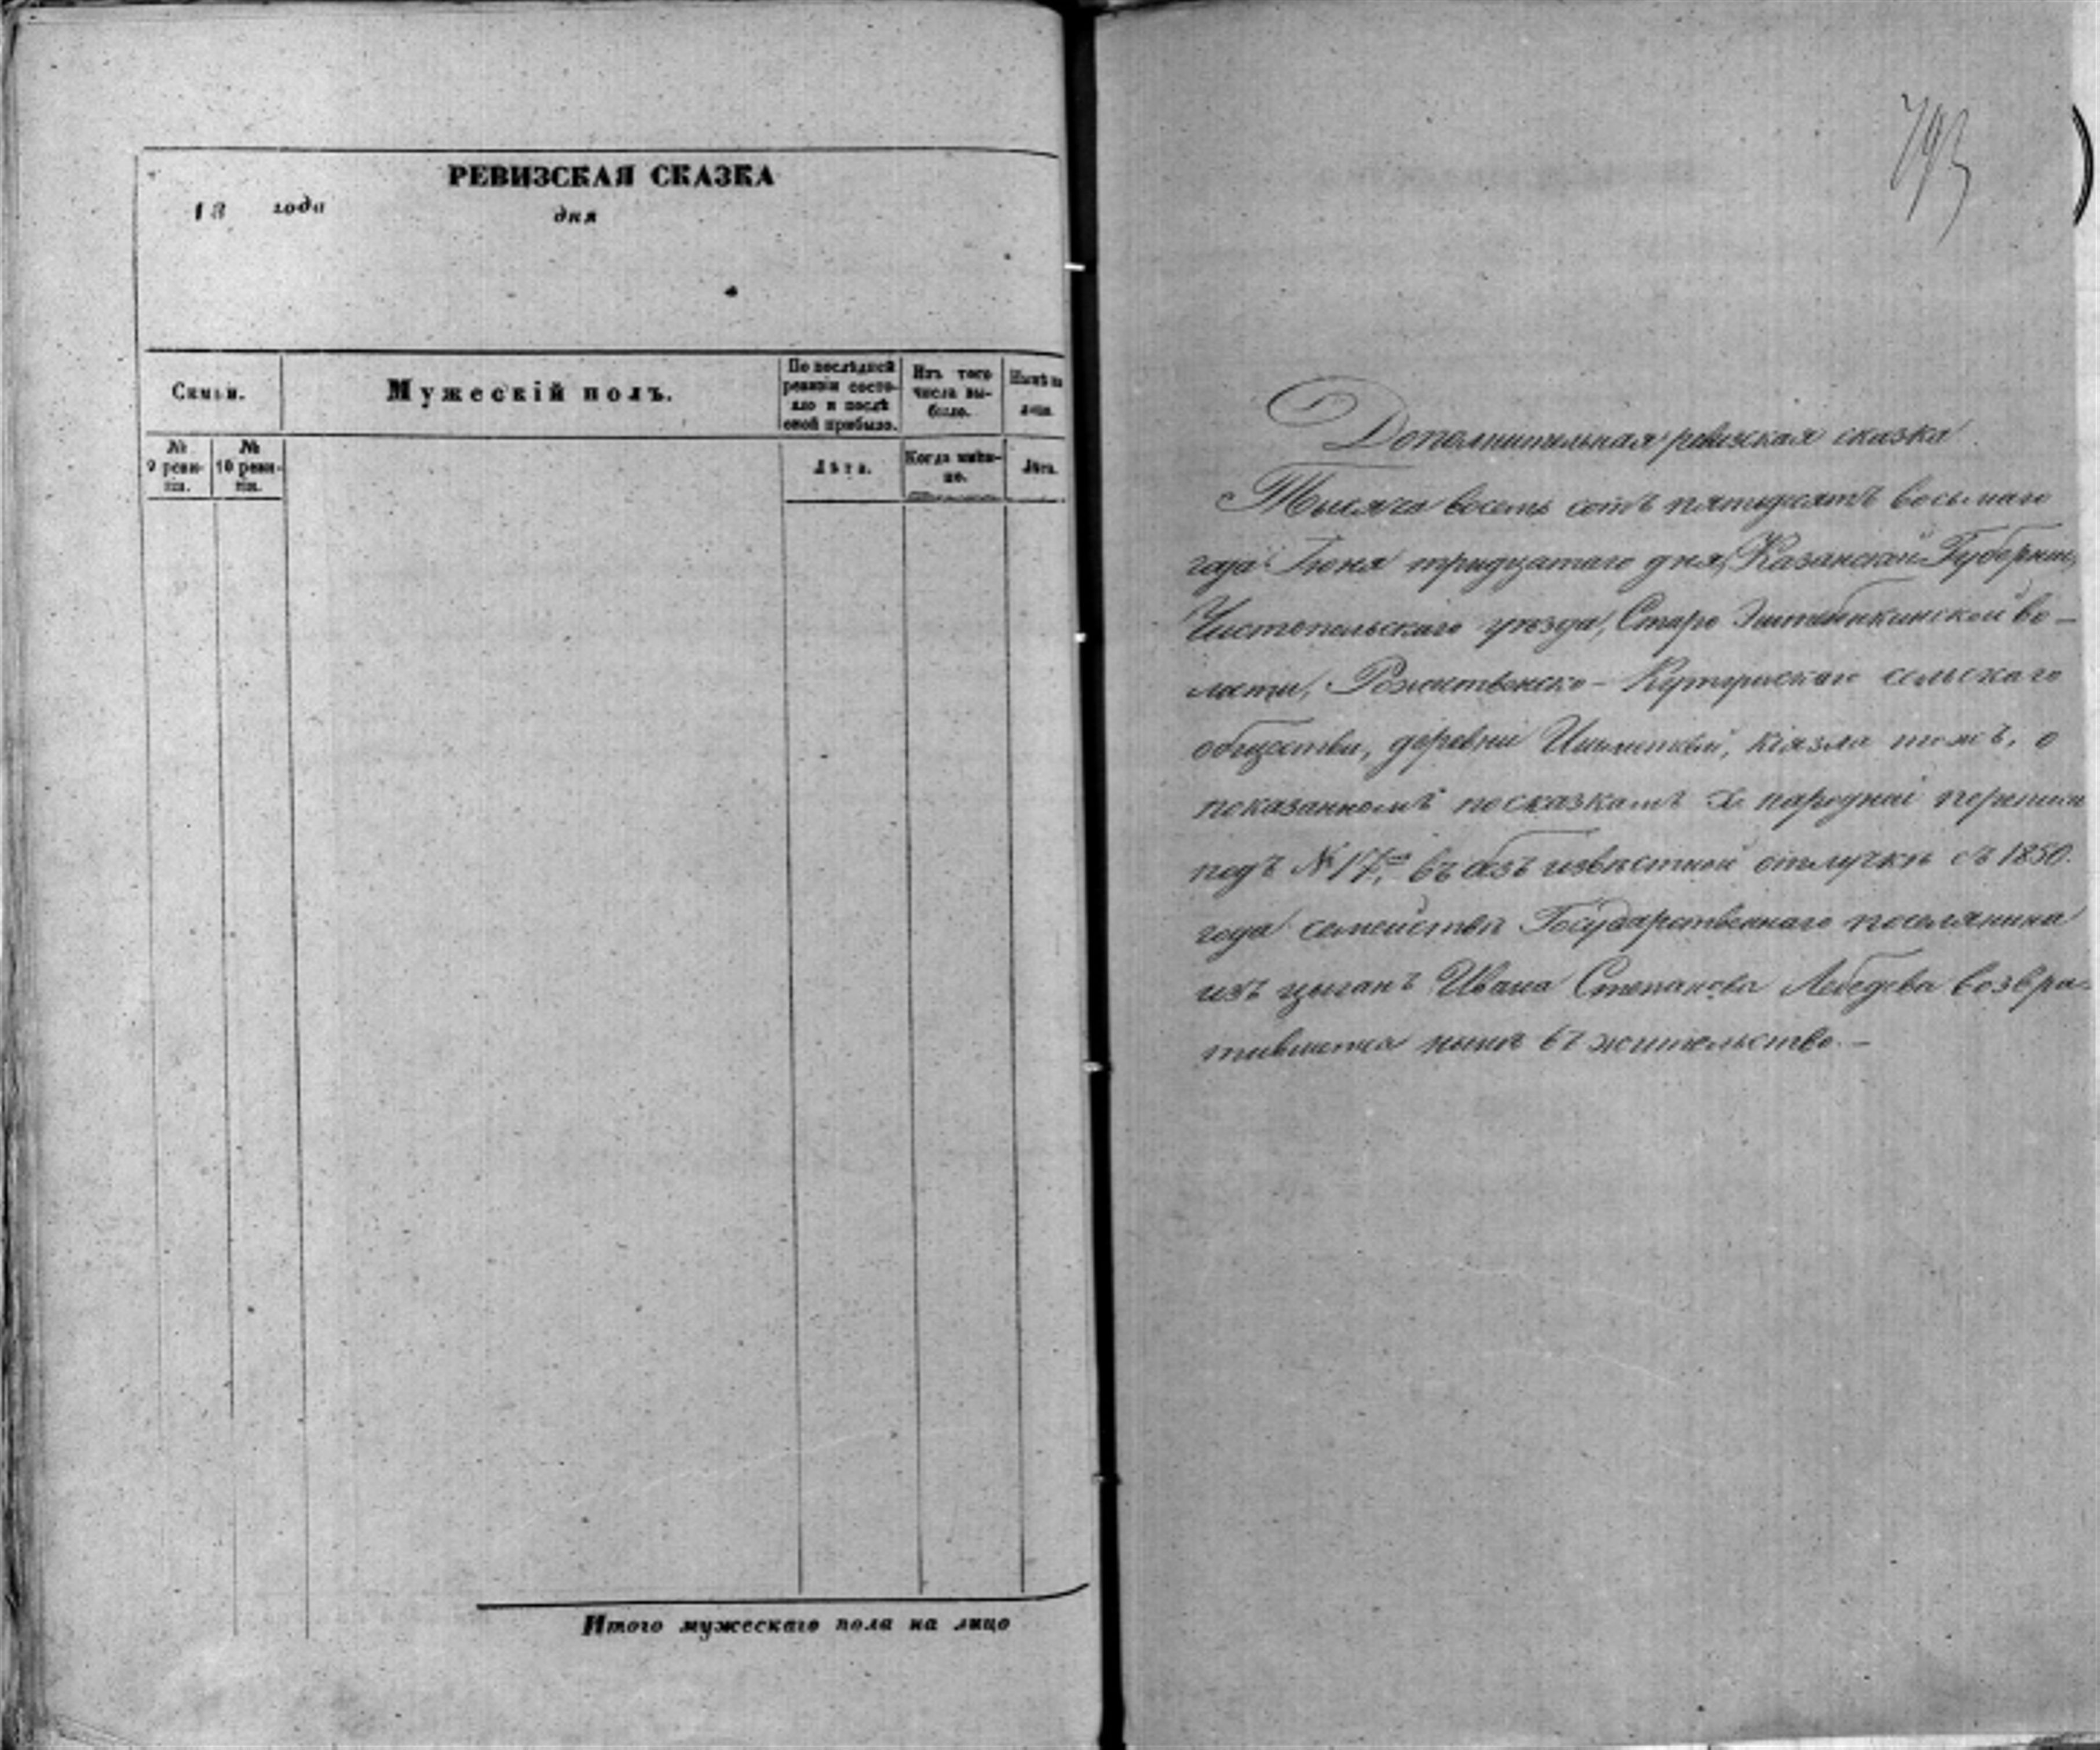 РЕВИЗСКАЯ СКАЗКА
18 года дня
Семьи.
Мужескій полъ.
По послѣдней ревизіи состояло и послѣ оной прибыло.
Изъ того числа выбыло.
Нынѣ на лицо.
№ 9 ревизіи.
№ 10 ревизіи.
Лѣта.
Когда именно.
Лѣта.
Итого мужескаго пола на лицо
793
Дополнительная ревизская сказка
Тысяча восемь сотъ пятьдесятъ восьмаго
года Іюня тридцатаго дня, Казанской Губерніи,
Чистопольскаго уѣзда, Старо Эштебинкинской во-
лости, Рождественско- сельскаго
общества, деревни Ишалькиной, тожъ, о
показанномъ по сказкамъ X народной переписи
подъ № 17.м въ безъизвѣстной отлучкѣ съ 1850.
года семействѣ Государственнаго поселянина
изъ цыганъ Ивана Степанова Лебедева возвра-
тившемся нынѣ въ жительство.-